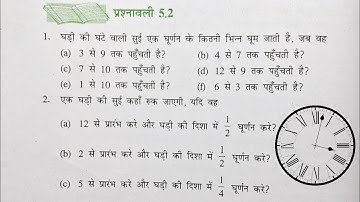 प्रश्नावली 5.2
1. घड़ी की घंटे वाली सुई एक घूर्णन के कितनी भिन्न घूम जाती है, जब वह
(a) 3 से 9 तक पहुँचती है? (b) 4 से 7 तक पहुँचती है?
(c) 7 से 10 तक पहुँचती है? (d) 12 से 9 तक पहुँचती है?
(e) 1 से 10 तक पहुँचती है? (f) 6 से 3 तक पहुँचती है?
2. एक घड़ी की सुई कहाँ रुक जाएगी, यदि वह
(a) 12 से प्रारंभ करे और घड़ी की दिशा में 1/2 घूर्णन करे?
(b) 2 से प्रारंभ करे और घड़ी की दिशा में 1/2 घूर्णन करे?
(c) 5 से प्रारंभ करे और घड़ी की दिशा में 1/4 घूर्णन करे?